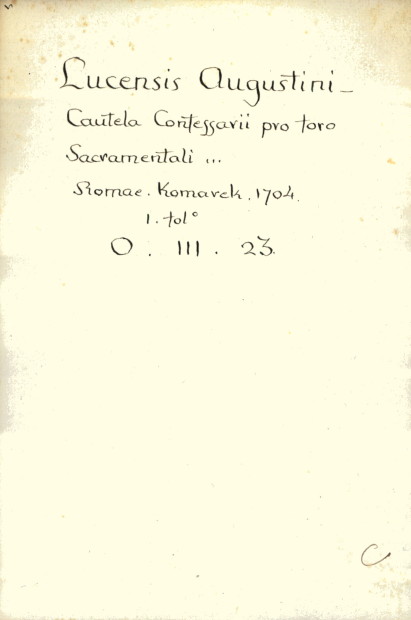 Lucensis Augustini_
Cautela Confessarii pro foro
Sacramentali ...
Romae. Komarek. 1704.
1. fol°
O. III. 23.
C